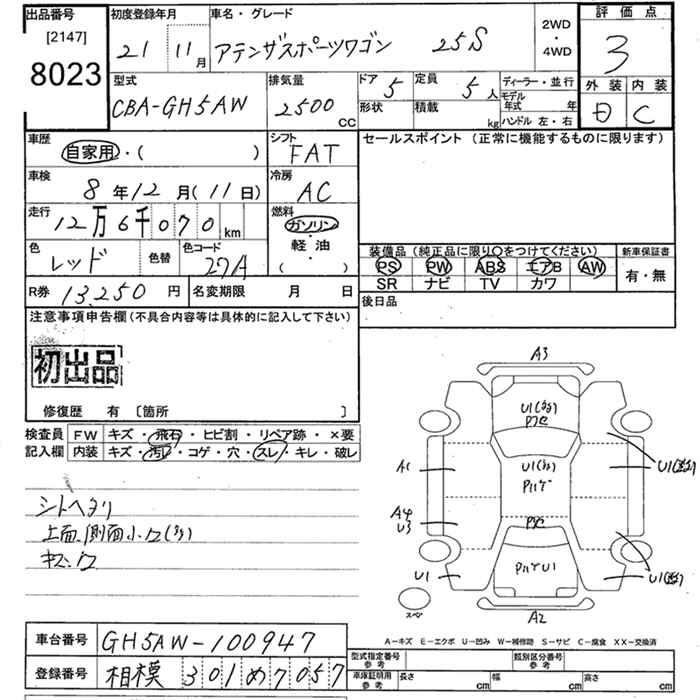 出品番号
[2147]
8023
初度登録年月
21 11月
車名・グレード
アテンザスポーツワゴン 25S
2WD
・
4WD
評価点
3
外装 内装
D C
型式
CBA-GH5AW
排気量
2500 CC
ドア 5
定員 5人
形状
積載 kg
ディーラー・並行
モデル
年式 年
ハンドル 左・右
車歴
自家用・( )
シフト
FAT
車検
8年12月(11日)
冷房
AC
走行
12万6千070km
燃料
ガソリン
・
軽油
( )
色
レッド
色替
色コード
27A
R券 13,250円
名変期限 月 日
セールスポイント (正常に機能するものに限ります)
装備品 (純正品に限り○をつけてください)
PS PW ABS エアB AW
SR ナビ TV カワ
新車保証書
有・無
後日品
注意事項申告欄(不具合内容等は具体的に記入して下さい)
初出品
修復歴 有 〔箇所 〕
検査員
記入欄
FW キズ・飛石・ヒビ割・リペア跡・×要
内装 キズ・汚れ・コゲ・穴・スレ・キレ・破レ
シートヘタリ
上面、側面小U(多)
A3
A1
A4
U3
U1
U1
A2
スペ
A-キズ E-エクボ U-凹み W-補修跡 S-サビ C-腐食 XX-交換済
車台番号 GH5AW-100947
登録番号 相模 301 め 7057
型式指定番号
参考
類別区分番号
参考
車庫証明用
参考
長さ cm 幅 cm 高さ cm